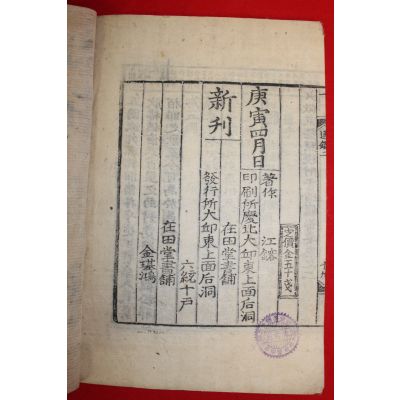 庚寅四月日
新刊
定價金五十戔
著作 江鎔
印刷所慶北大邱東上面后洞
在田堂書舖
發行所大邱東上面后洞
六統十戶
在田堂書舖
金琪鴻